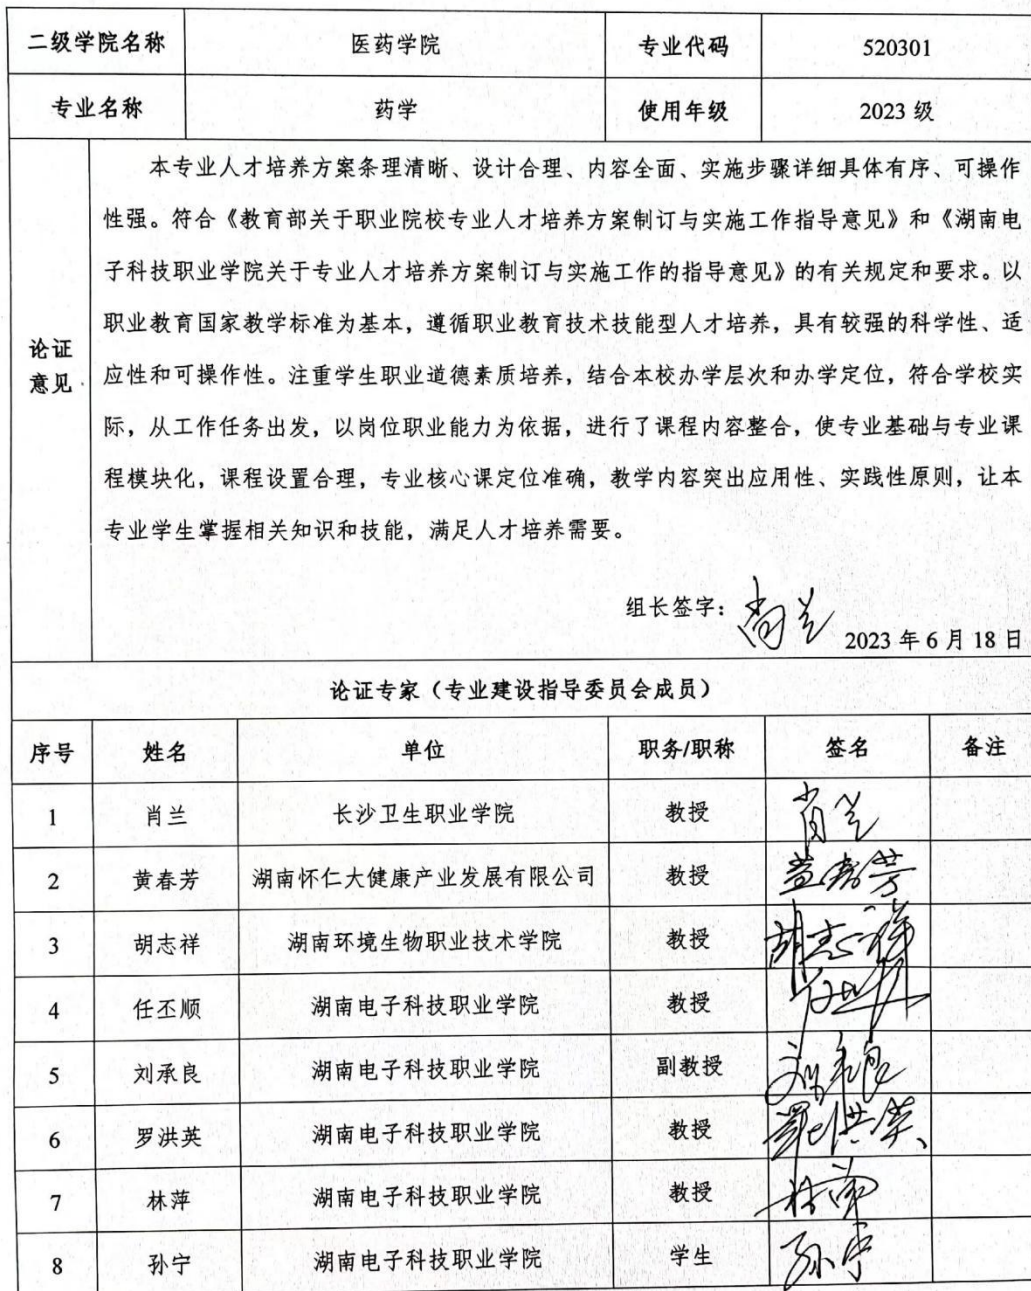 二级学院名称 医药学院 专业代码 520301
专业名称 药学 使用年级 2023 级
本专业人才培养方案条理清晰、设计合理、内容全面、实施步骤详细具体有序、可操作
性强。符合《教育部关于职业院校专业人才培养方案制订与实施工作指导意见》和《湖南电
子科技职业学院关于专业人才培养方案制订与实施工作的指导意见》的有关规定和要求。以
职业教育国家教学标准为基本，遵循职业教育技术技能型人才培养，具有较强的科学性、适
论证
意见
应性和可操作性。注重学生职业道德素质培养，结合本校办学层次和办学定位，符合学校实
际，从工作任务出发，以岗位职业能力为依据，进行了课程内容整合，使专业基础与专业课
程模块化，课程设置合理，专业核心课定位准确，教学内容突出应用性、实践性原则，让本
专业学生掌握相关知识和技能，满足人才培养需要。
组长签字：肖兰
2023 年 6 月 18 日
论证专家（专业建设指导委员会成员）
序号 姓名 单位 职务/职称 签名 备注
1 肖兰 长沙卫生职业学院 教授 肖兰
2 黄春芳 湖南怀仁大健康产业发展有限公司 教授
3 胡志祥 湖南环境生物职业技术学院 教授 胡志祥
4 任丕顺 湖南电子科技职业学院 教授
5 刘承良 湖南电子科技职业学院 副教授
6 罗洪英 湖南电子科技职业学院 教授 罗洪英
7 林萍 湖南电子科技职业学院 教授 林萍
8 孙宁 湖南电子科技职业学院 学生 孙宁